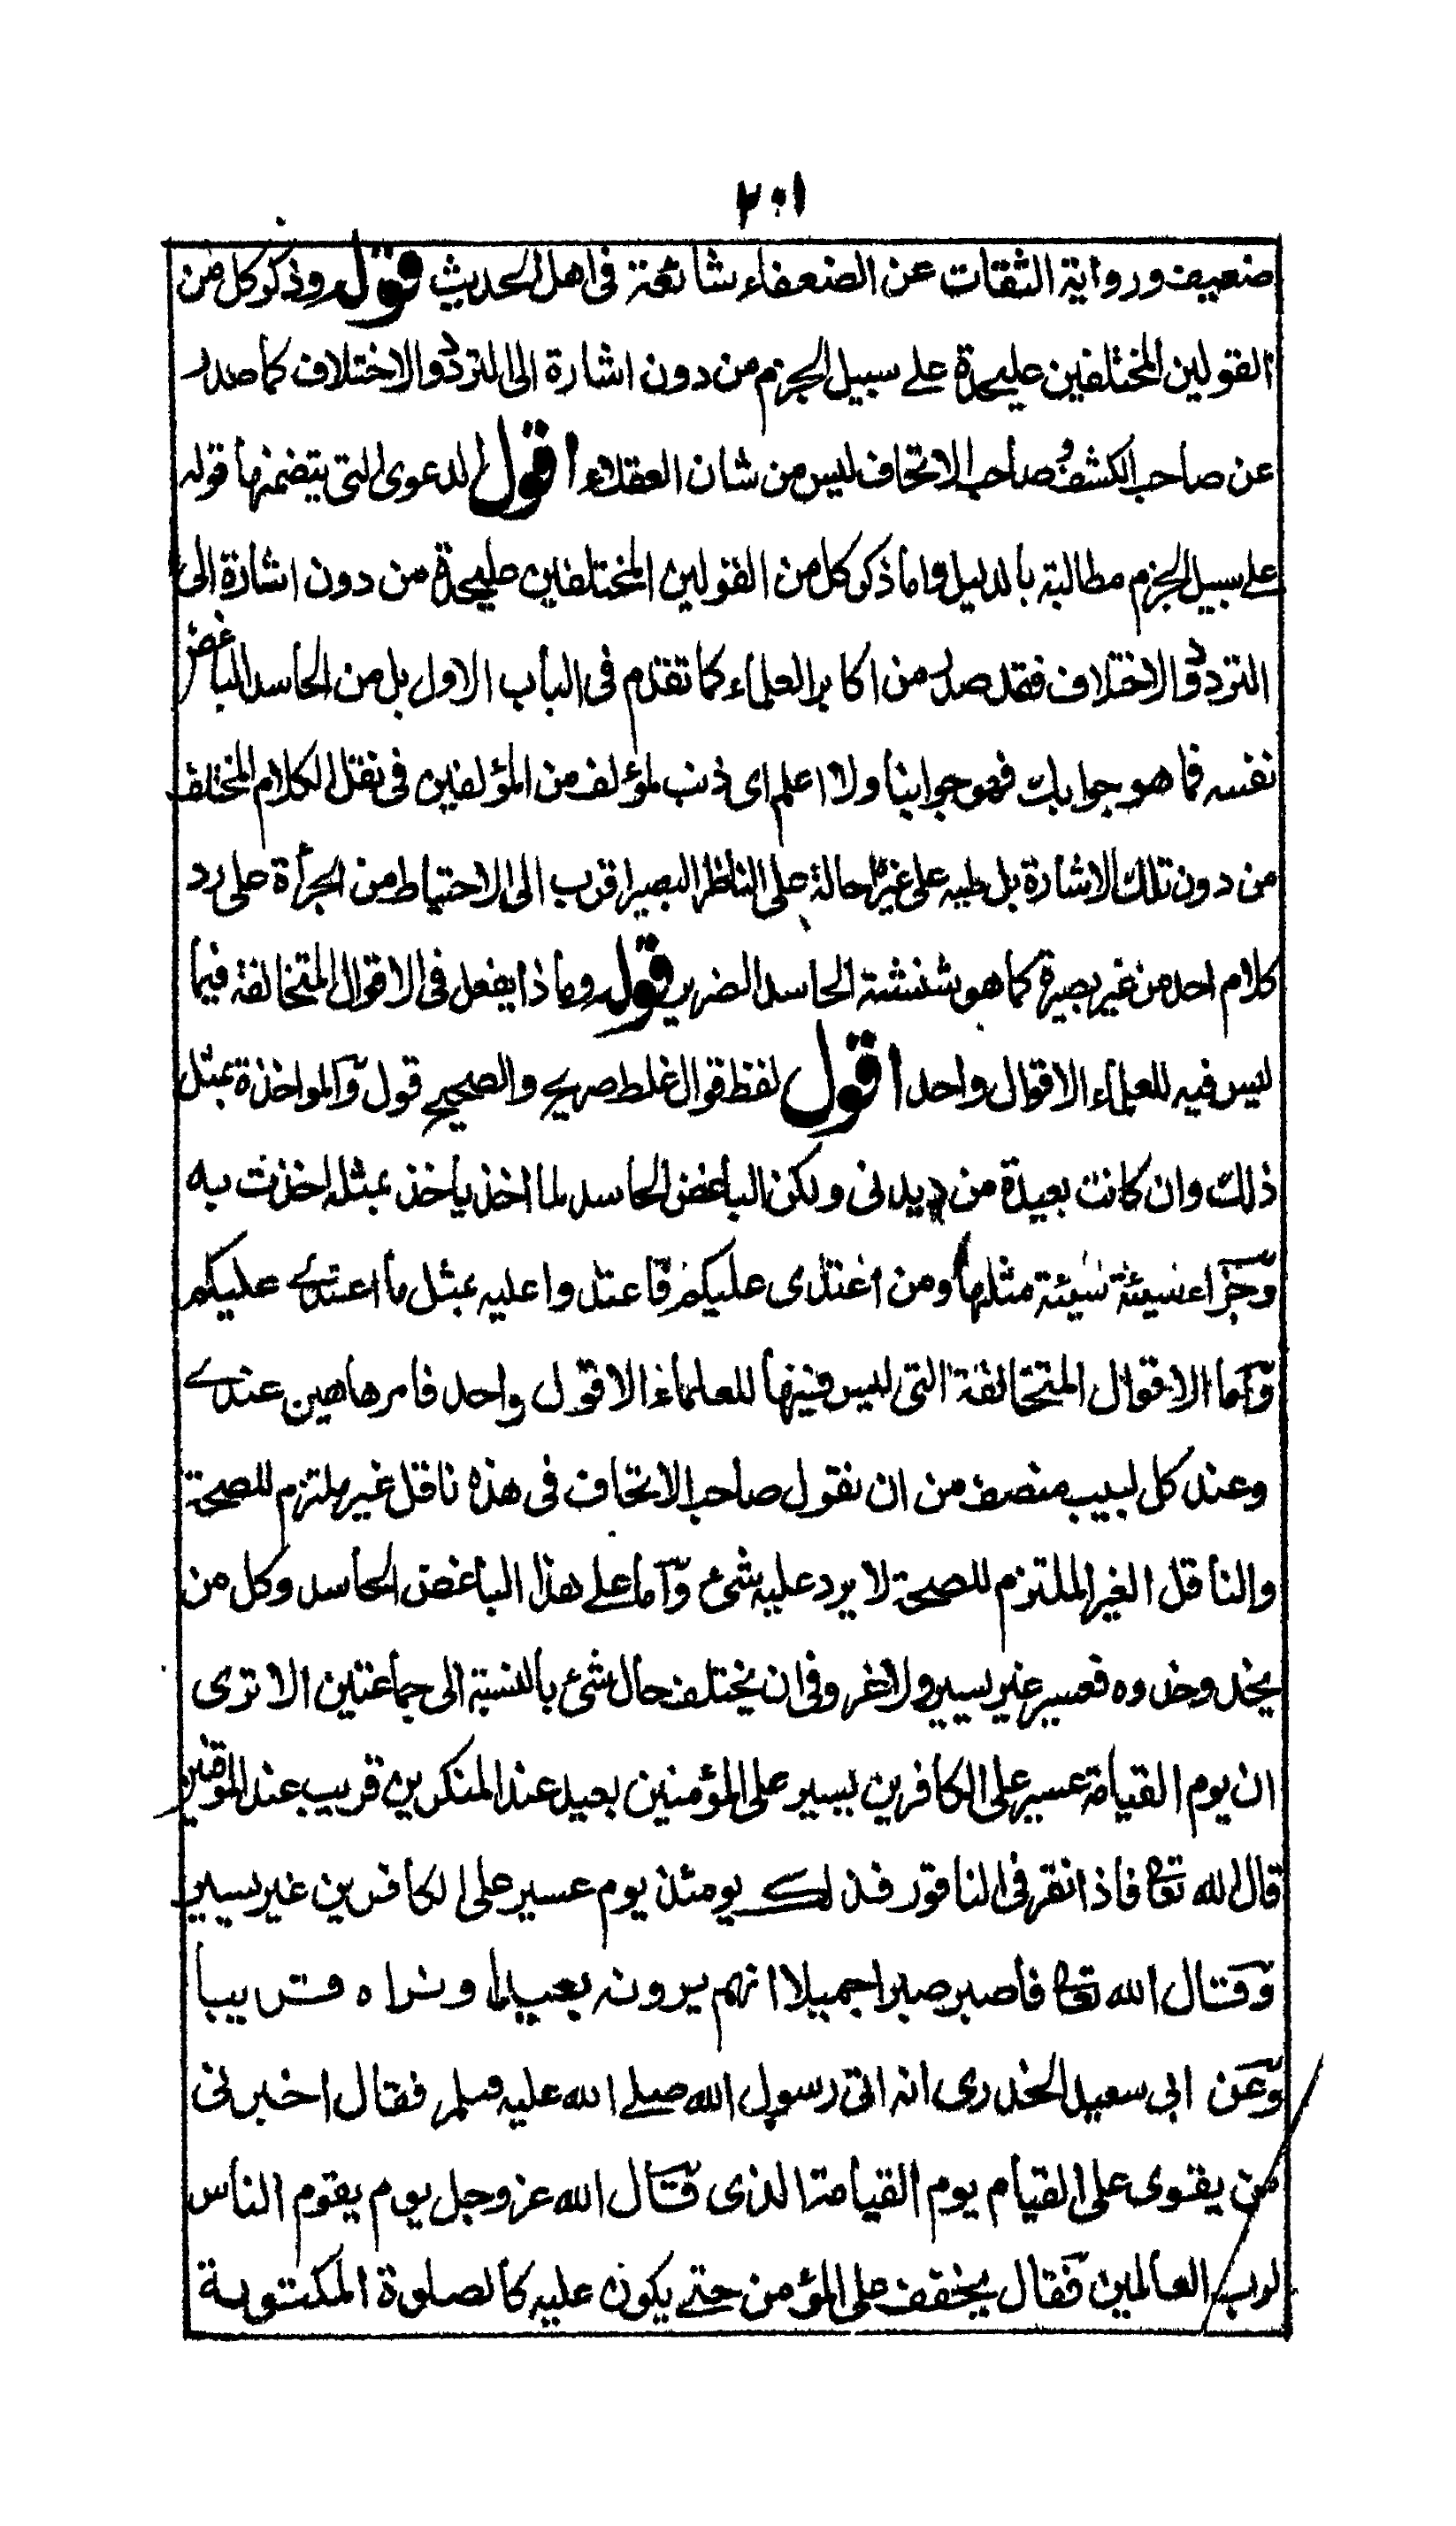 ٢٠١
ضعيف ورواية الثقات عن الضعفاء شائعة فى اهل الحديث قوله وذكر كل من
القولين المختلفين عليحدة على سبيل الجزم من دون اشارة الى التردد والاختلاف كما صدر
عن صاحب الكشف وصاحب الاتحاف ليس من شان العقلاء اقول الدعوى التى يتضمنها قوله
على سبيل الجزم مطالبة بالدليل واما ذكر كل من القولين المختلفين عليحدة من دون اشارة الى
التردد والاختلاف فقد صدر من اكابر العلماء كما تقدم فى الباب الاول بل من الحاسد الباغض
نفسه فما هو جوابك فهو جوابنا ولا اعلم اى ذنب لمؤلف من المؤلفين فى نقل الكلام المختلف
من دون تلك الاشارة بل طيه على غيره احالة على الناظر البصير اقرب الى الاحتياط من الجرأة على رد
كلام احد من غير بصيرة كما هو شنشنة الحاسد الضرير قوله وماذا يفعل فى الاقوال المتخالفة فيما
ليس فيه للعلماء الاقوال واحد اقول لفظ قوال غلط صريح والصحيح قول والمواخذة بمثل
ذلك وان كانت بعيدة من ديدنى ولكن الباغض الحاسد لما اخذ ياخذ بمثله اخذت به
وجزاء سيئة سيئة مثلها ومن اعتدى عليكم فاعتدوا عليه بمثل ما اعتدى عليكم
واما الاقوال المتخالفة التى ليس فيها للعلماء الا قول واحد فامرها هين عندى
وعند كل لبيب منصف من ان نقول صاحب الاتحاف فى هذه ناقل غير ملتزم للصحة
والناقل الغير الملتزم للصحة لا يرد عليه شئ واما على هذا الباغض الحاسد وكل من
يحذو حذوه فعسير غير يسير ولا غرو فى ان يختلف حال شئ بالنسبة الى جماعتين الا ترى
ان يوم القيامة عسير على الكافرين يسير على المؤمنين بعيد عند المنكرين قريب عند الموقنين
قال الله تعا فاذا نقر فى الناقور فذلك يومئذ يوم عسير على الكافرين غير يسير
وقال الله تعا فاصبر صبرا جميلا انهم يرونه بعيدا ونراه قريبا
وعن ابى سعيد الخدرى انه اتى رسول الله صلى الله عليه وسلم فقال اخبرنى
من يقوى على القيام يوم القيامة الذى قال الله عز وجل يوم يقوم الناس
لرب العالمين فقال يخفف على المؤمن حتى يكون عليه كالصلوة المكتوبة